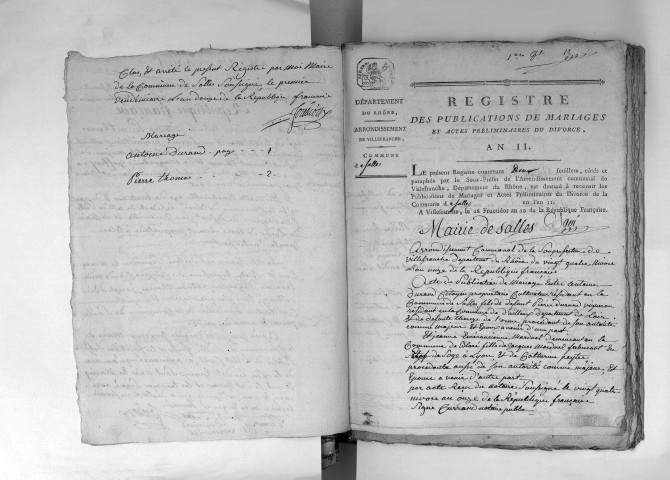 Clos et arrêté le present Registre par moi Maire
de la Commune de Salles Soussigné le premier
Vendemiaire l'an douze de la République francaise
Mariage
antoine Durand - page - - - 1
Pierre thomas - - - - - 2
DÉPARTEMENT
DU RHÔNE,
ARRONDISSEMENT
DE VILLEFRANCHE,
COMMUNE
de Salles
REGISTRE
DES PUBLICATIONS DE MARIAGES
ET ACTES PRÉLIMINAIRES DU DIVORCE,
AN 11.
LE présent Registre contenant Deux feuillets, cotés et
paraphés par le Sous-Préfet de l'Arrondissement communal de
Villefranche, Département du Rhône, est destiné à recevoir les
Publications de Mariages et Actes Préliminaires du Divorce de la
Commune de Salles en l'an 11.
A Villefranche, le 18 Fructidor an 10 de la République Française.
Mairie de Salles
Arrondissement Communal de la Souprefecture de
villefranche departement du Rhône du vingt quatre Nivose
L'an onze de la République française
Acte de Publication de Mariage Entre antoine
Durand Citoyen proprietaire Cultivateur résidant en la
Commune de Salles fils de defunt Pierre durand vigneron
résidant en la Commune de departement de Loire
et de defunte procedant de son autorité
comme majeur et Epoux avenir d'une part.
Et jeanne Mardoel demeurant en la
Commune de fille de jacques Mardoel fabricant de
de Soye à Lyon, et de Catherine
procedante aussi de son autorité comme majeure, et
Epouse a venir d'autre part
par acte Recu du notaire Soussigné le vingt quatre
nivose an onze de la République française
Signé notaire public